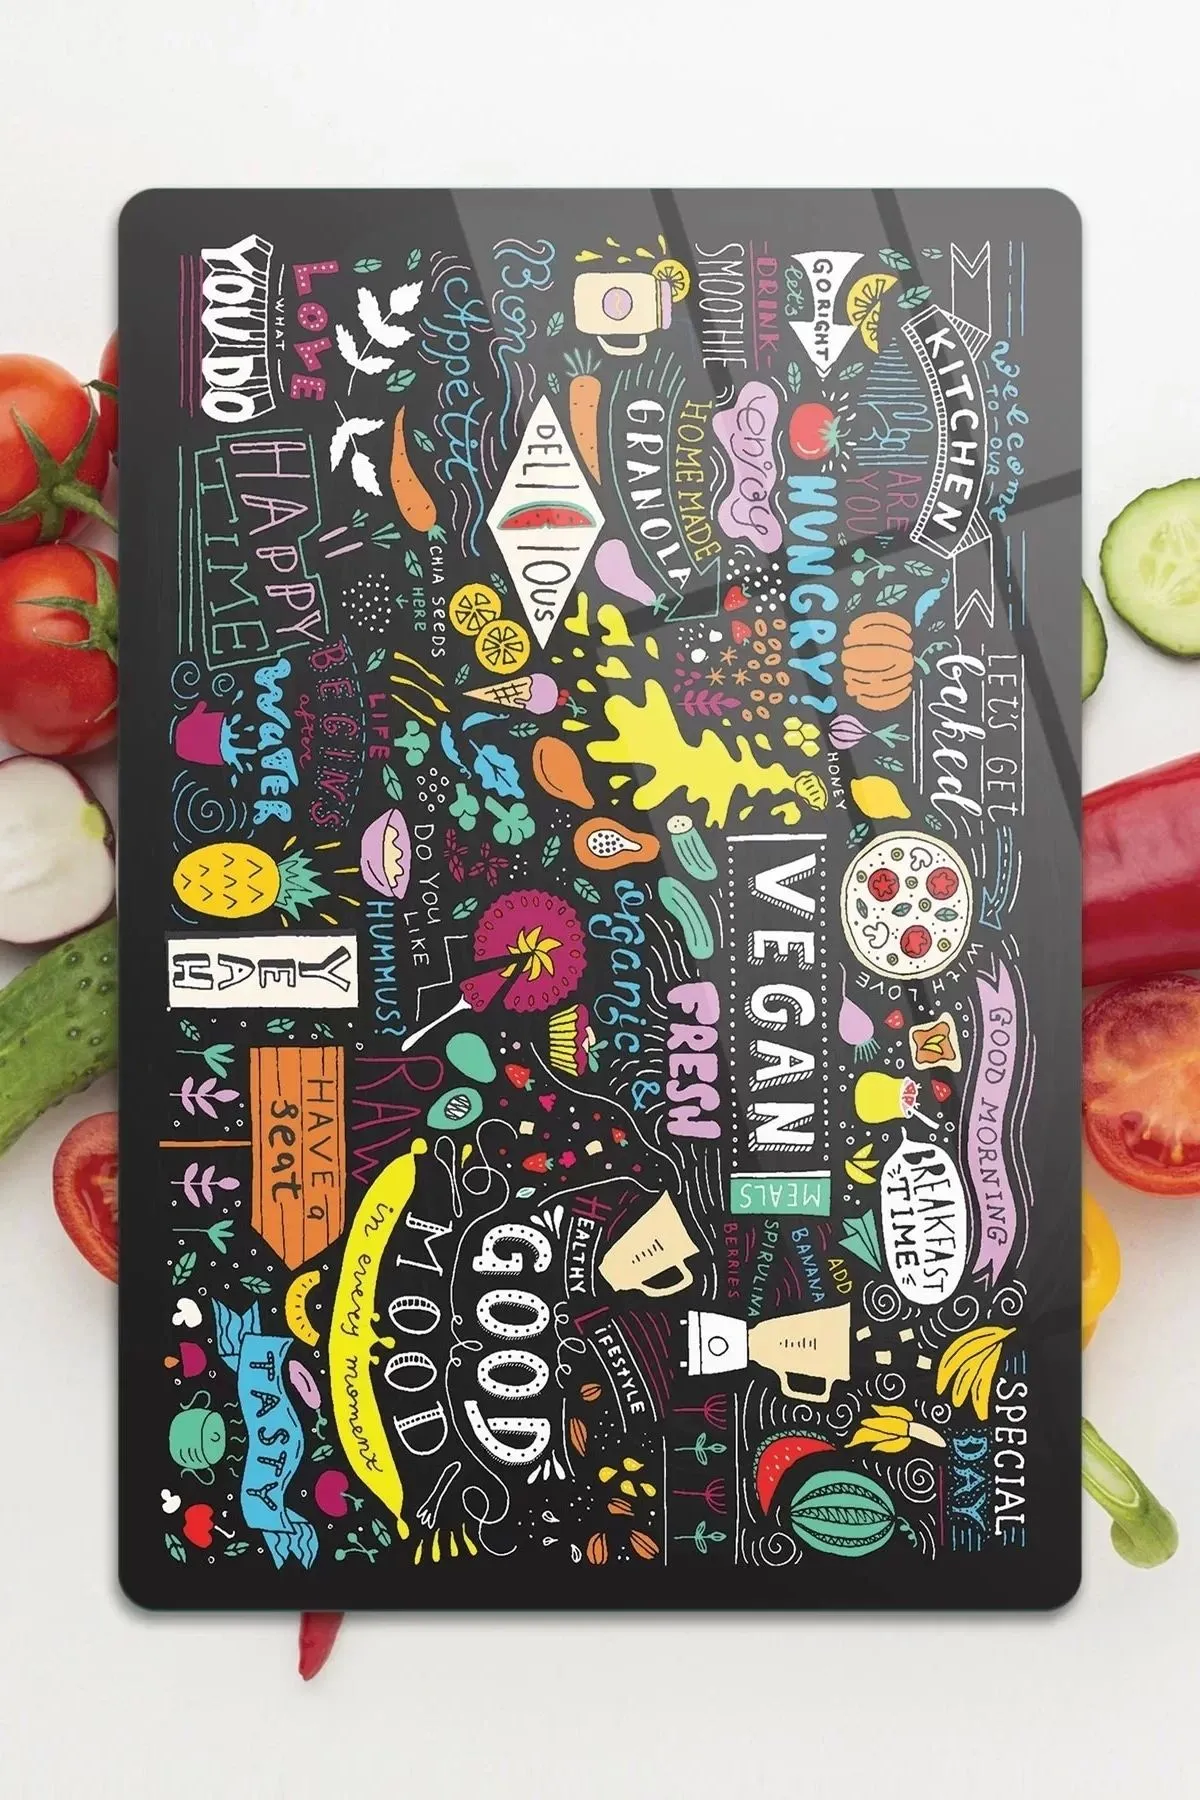 welcome
TO OUR
KITCHEN
LET'S GET
baked
WITH LOVE
GOOD MORNING
BREAKFAST
TIME
SPECIAL
DAY
let's
GO RIGHT
ARE
YOU
HUNGRY?
HONEY
-DRINK-
SMOOTHIE
enjoy
HOME MADE
GRANOLA
VEGAN
MEALS
ADD
BANANA
SPIRULINA
BERRIES
Bon
Appetit
DELICIOUS
organic
&
FRESH
HEALTHY
LIFESTYLE
CHIA SEEDS
HERE
DO YOU LIKE
HUMMUS?
RAW
GOOD
MOOD
in every moment
LOVE
WHAT
YOU DO
HAPPY
TIME
LIFE
BEGINS
after
WATER
YEAH
HAVE a
seat
TASTY